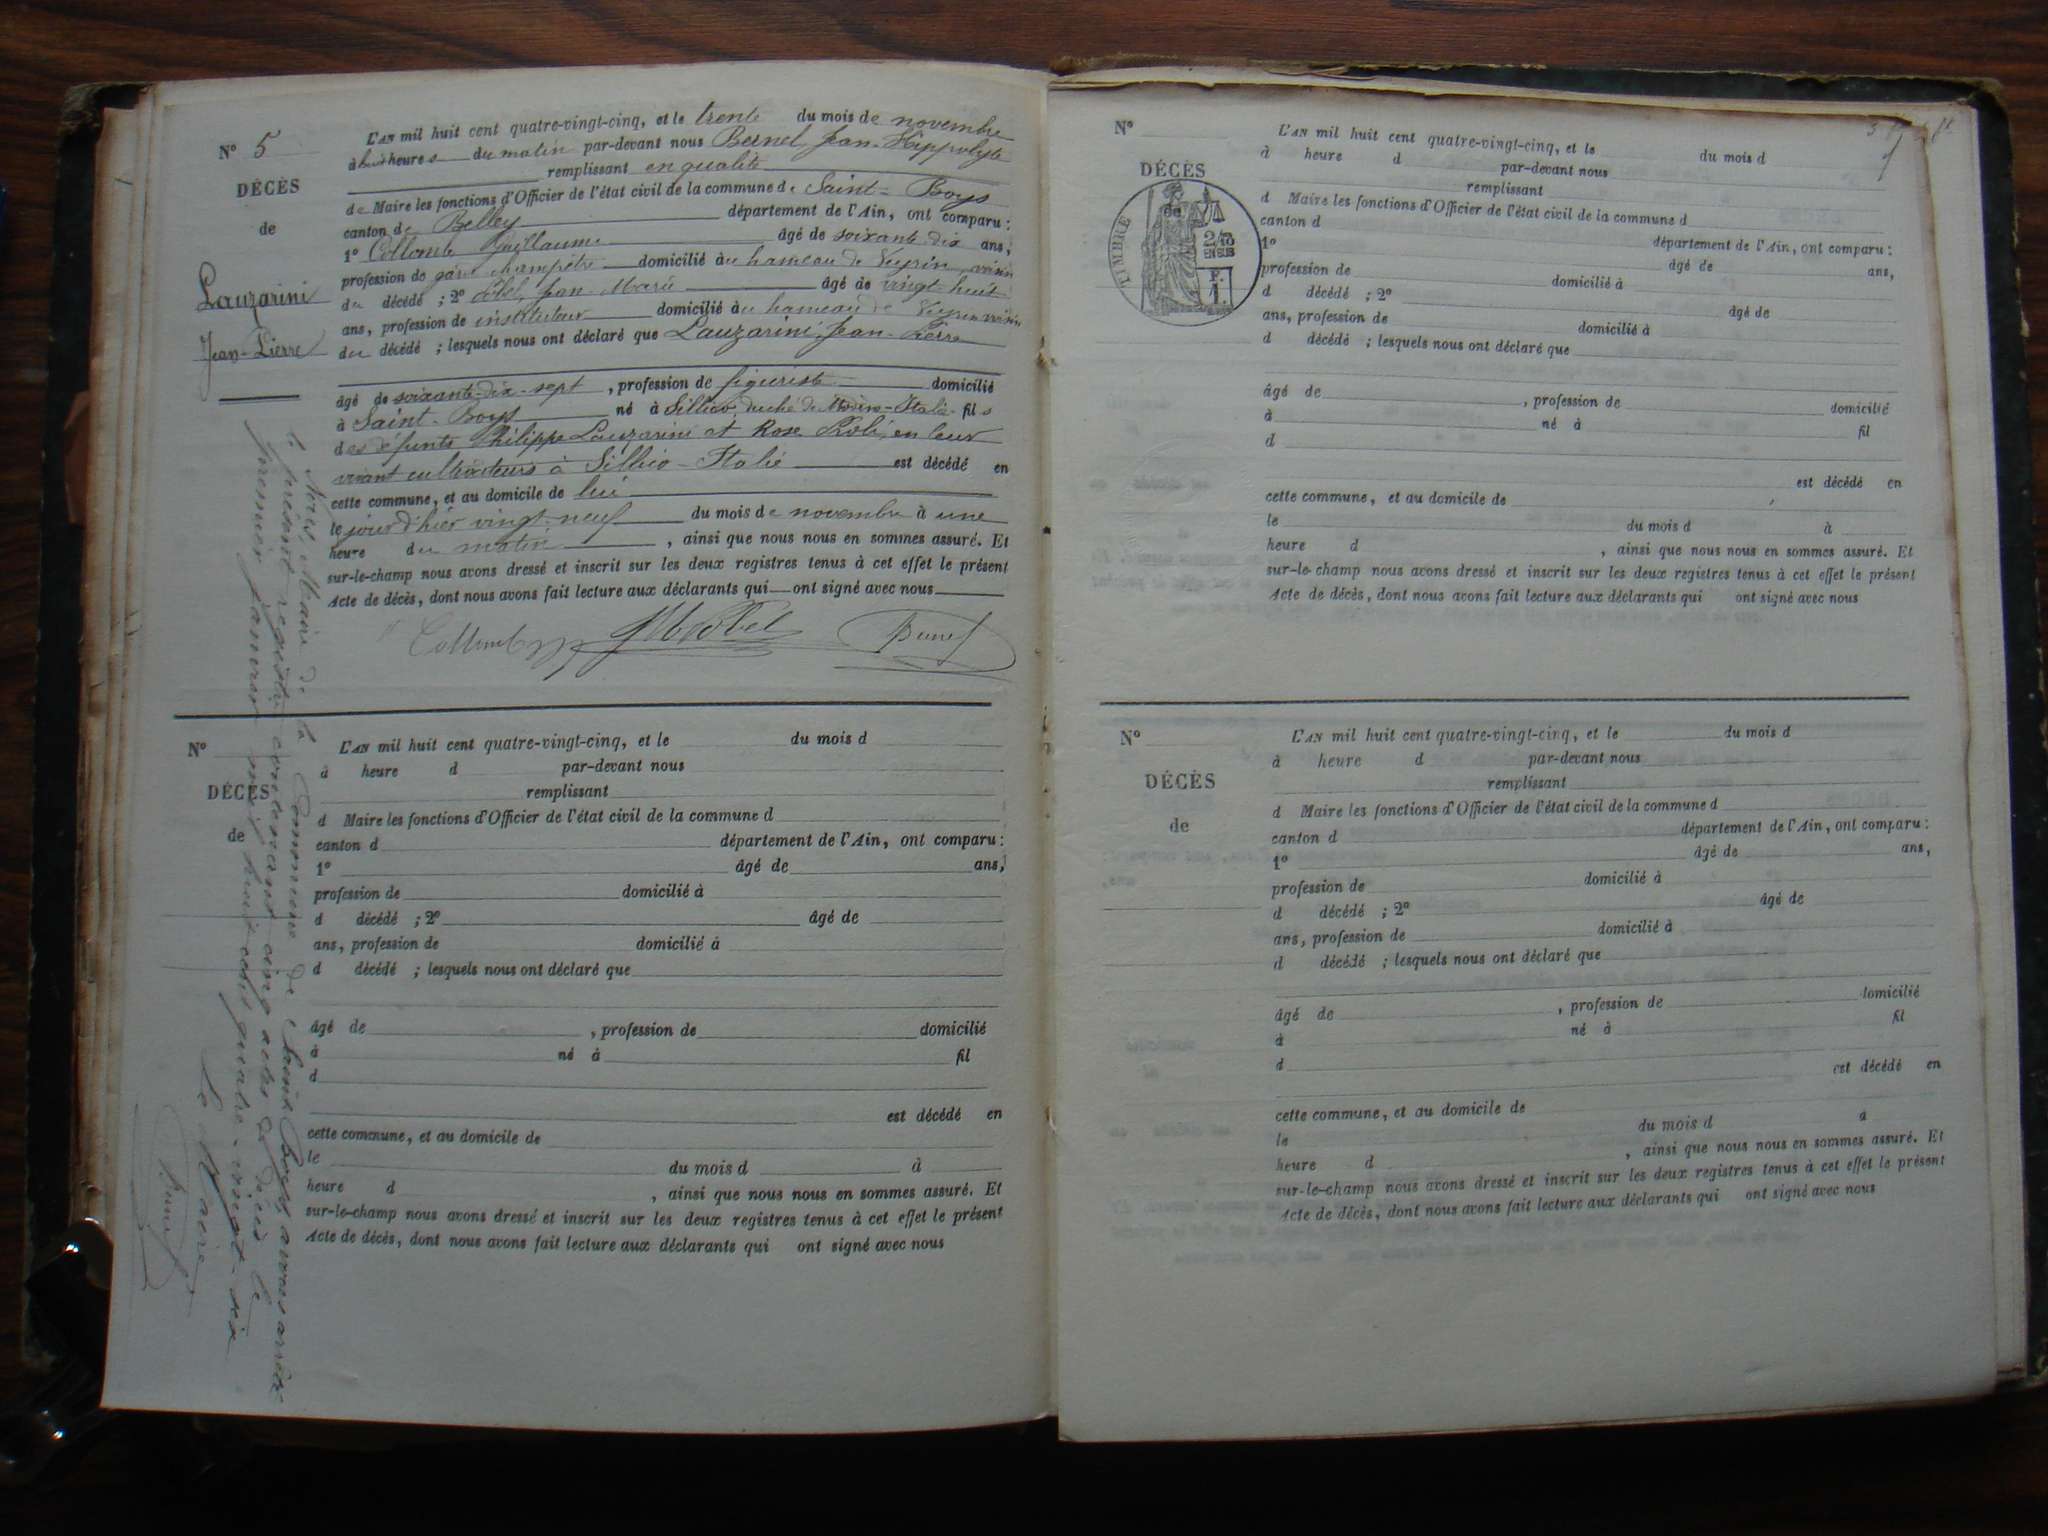 N° 5
DÉCÈS
de
Lauzarini
Jean-Pierre
L'AN mil huit cent quatre-vingt-cinq, et le trente du mois de novembre
à huit heures du matin par-devant nous Bernel, Jean-Hippolyte
remplissant en qualité
de Maire les fonctions d'Officier de l'état civil de la commune de Saint-Boys
canton de Belley département de l'Ain, ont comparu :
1° Collomb Guillaume âgé de soixante dix ans,
profession de garde champêtre domicilié au hameau de Veyrin, voisin
du décédé ; 2° Jean-Marie âgé de vingt-huit
ans, profession de instituteur domicilié au hameau de Veyrin voisin
du décédé ; lesquels nous ont déclaré que Lauzarini, Jean-Pierre
âgé de soixante-dix-sept , profession de figuriste domicilié
à Saint-Boys né à Sillico, duché de Modène-Italie fils
des défunts Philippe Lauzarini et Rose Poli, en leur
vivant cultivateurs à Sillico-Italie est décédé en
cette commune, et au domicile de lui
le jour d'hier vingt-neuf du mois de novembre à une
heure du matin , ainsi que nous nous en sommes assuré. Et
sur-le-champ nous avons dressé et inscrit sur les deux registres tenus à cet effet le présent
Acte de décès, dont nous avons fait lecture aux déclarants qui ont signé avec nous
Collomb Bernel
Nous, Maire de la Commune de Saint Boys, avons arrêté
le présent registre contenant cinq actes de décès le
premier janvier mil huit cent quatre-vingt-six
Le Maire
Bernel
N°
DÉCÈS
de
L'AN mil huit cent quatre-vingt-cinq, et le du mois d
à heure d par-devant nous
remplissant
d Maire les fonctions d'Officier de l'état civil de la commune d
canton d département de l'Ain, ont comparu :
1° âgé de ans,
profession de domicilié à
d décédé ; 2° âgé de
ans, profession de domicilié à
d décédé ; lesquels nous ont déclaré que
âgé de , profession de domicilié
à né à fil
d
est décédé en
cette commune, et au domicile de
le du mois d à
heure d , ainsi que nous nous en sommes assuré. Et
sur-le-champ nous avons dressé et inscrit sur les deux registres tenus à cet effet le présent
Acte de décès, dont nous avons fait lecture aux déclarants qui ont signé avec nous
N°
DÉCÈS
de
TIMBRE
2/10
EN SUS
L'AN mil huit cent quatre-vingt-cinq, et le du mois d
à heure d par-devant nous
remplissant
d Maire les fonctions d'Officier de l'état civil de la commune d
canton d département de l'Ain, ont comparu :
1° âgé de ans,
profession de domicilié à
d décédé ; 2° âgé de
ans, profession de domicilié à
d décédé ; lesquels nous ont déclaré que
âgé de , profession de domicilié
à né à fil
d
est décédé en
cette commune, et au domicile de
le du mois d à
heure d , ainsi que nous nous en sommes assuré. Et
sur-le-champ nous avons dressé et inscrit sur les deux registres tenus à cet effet le présent
Acte de décès, dont nous avons fait lecture aux déclarants qui ont signé avec nous
N°
DÉCÈS
de
L'AN mil huit cent quatre-vingt-cinq, et le du mois d
à heure d par-devant nous
remplissant
d Maire les fonctions d'Officier de l'état civil de la commune d
canton d département de l'Ain, ont comparu :
1° âgé de ans,
profession de domicilié à
d décédé ; 2° âgé de
ans, profession de domicilié à
d décédé ; lesquels nous ont déclaré que
âgé de , profession de domicilié
à né à fil
d
est décédé en
cette commune, et au domicile de
le du mois d à
heure d , ainsi que nous nous en sommes assuré. Et
sur-le-champ nous avons dressé et inscrit sur les deux registres tenus à cet effet le présent
Acte de décès, dont nous avons fait lecture aux déclarants qui ont signé avec nous